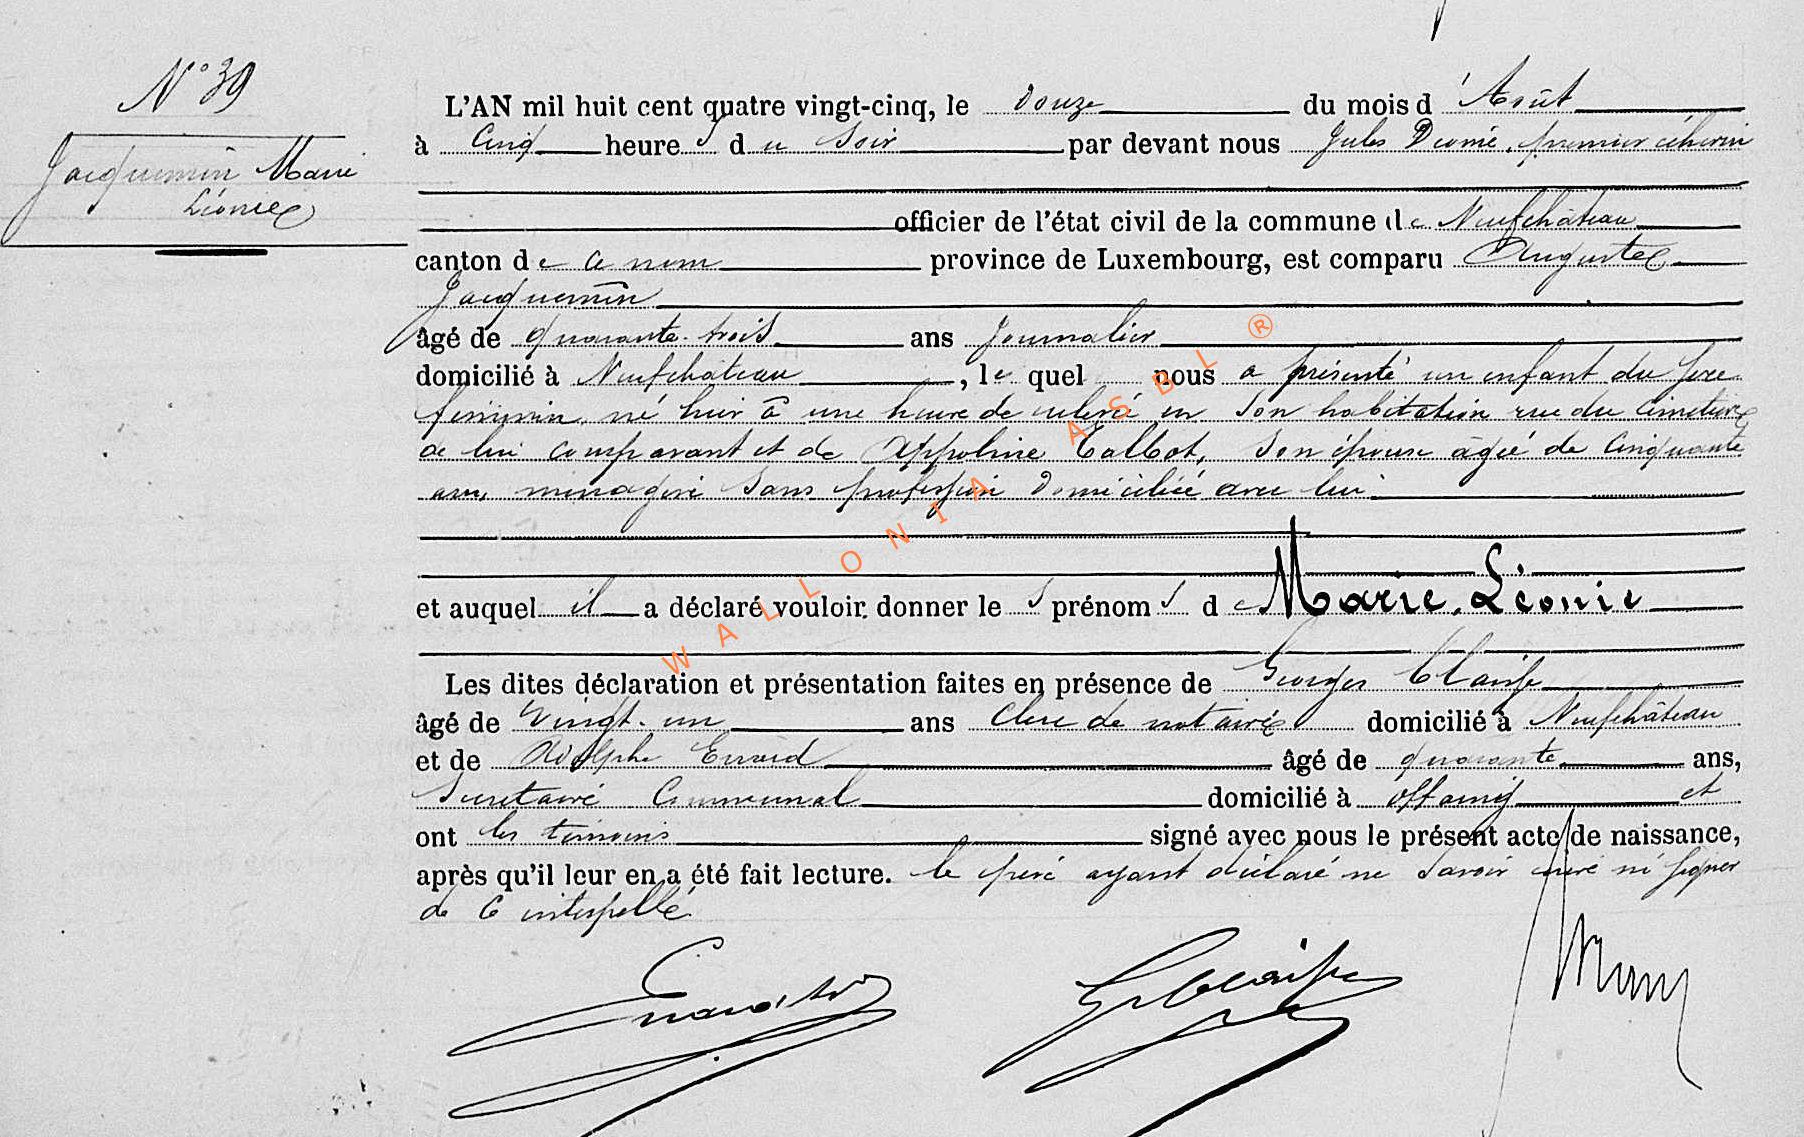 N° 39
Jacquemin Marie
Léonie
L'AN mil huit cent quatre vingt-cinq, le douze du mois d'Août
à Cinq heures du soir par devant nous Jules premier échevin
officier de l'état civil de la commune de Neufchâteau
canton de ce nom province de Luxembourg, est comparu Auguste
Jacquemin
âgé de quarante-trois ans Journalier
domicilié à Neufchâteau, lequel nous a présenté un enfant du sexe
féminin, né hier à une heure de relevé en son habitation rue du Cimetière
de lui comparant et de Appoline Talbot, son épouse âgée de Cinquante
ans, ménagère sans profession domiciliée avec lui.
et auquel il a déclaré vouloir donner les prénoms de Marie. Léonie
Les dites déclaration et présentation faites en présence de Georges Claisse
âgé de Vingt-un ans Clerc de notaire domicilié à Neufchâteau
et de Adolphe Evrard âgé de quarante ans,
Secrétaire Communal domicilié à Offaing et
ont les témoins signé avec nous le présent acte de naissance,
après qu'il leur en a été fait lecture. le père ayant déclaré ne savoir écrire ni signer
de ce interpellé
WALLONIA ASBL ®